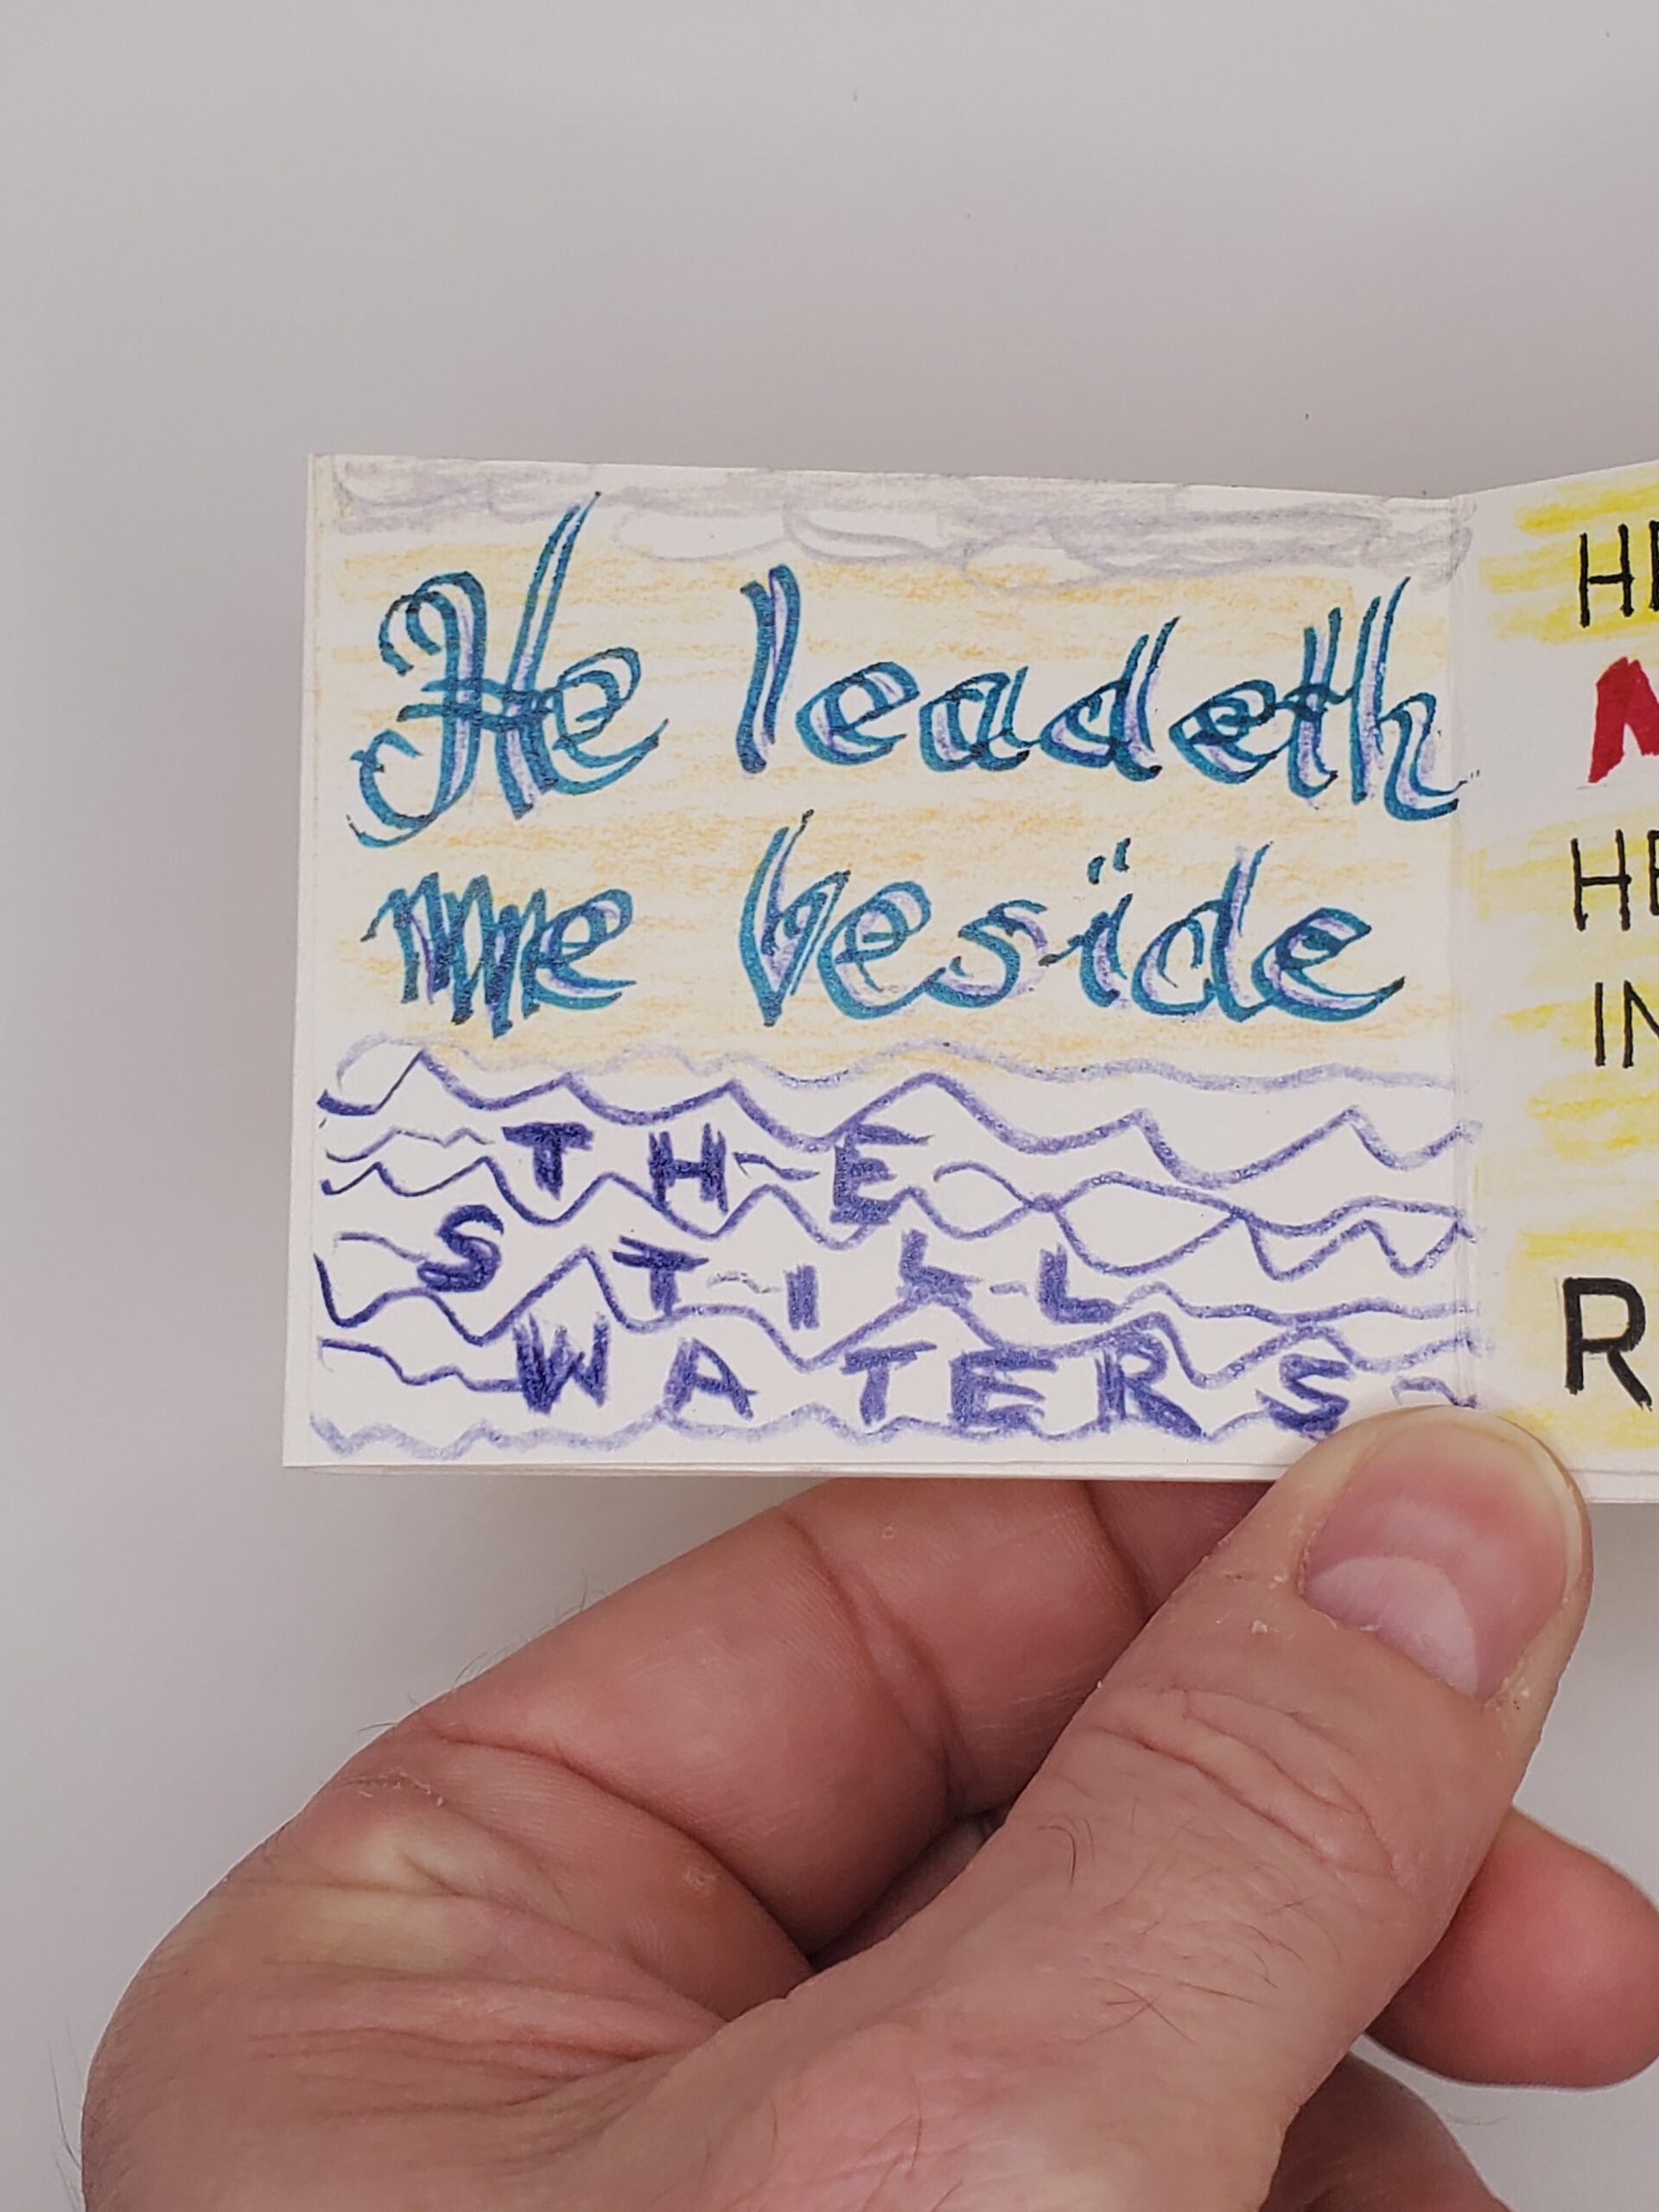 He leadeth
me beside
THE
STILL
WATERS
HE
IN
R